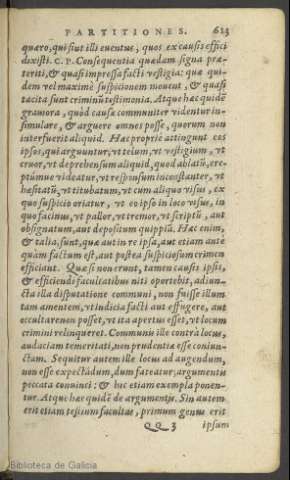 PARTITIONES. 623
quæro, qui siut illi euentus, quos ex causis effici
dixisti. C. P. Consequentia quædam signa præ-
teriti, & quasi impressa facti vestigia: quæ qui-
dem vel maximè suspicionem mouent, & quasi
tacita sunt criminũ testimonia. Atque hæc quidẽ
grauiora, quòd causæ communiter videntur in-
simulare, & arguere omnes posse, quorum non
interfuerit aliquid. Hæc propriè attingunt eos
ipsos, qui arguuntur, vt telum, vt vestigium, vt
cruor, vt deprehensum aliquid, quod ablatũ, ere-
ptúmue videatur, vt responsum inconstanter, vt
hæsitatũ, vt titubatum, vt cum aliquo visus, ex
quo suspicio oriatur, vt eo ipso in loco visus, in
quo facinus, vt pallor, vt tremor, vt scriptũ, aut
obsignatum, aut depositum quippiã. Hæc enim,
& talia, sunt, quæ aut in re ipsa, aut etiam ante
quàm factum est, aut postea suspiciosum crimen
efficiant. Quæ si non erunt, tamen causis ipsis,
& efficiendi facultatibus niti oportebit, adiun-
cta illa disputatione communi, non fuisse illum
tam amentem, vt indicia facti aut effugere, aut
occultare non posset, vt ita apertus esset, vt locum
crimini relinqueret. Communis ille contrà locus,
audaciam temeritati, non prudentiæ esse coniun-
ctam. Sequitur autem ille locus ad augendum,
non esse expectãdum, dum fateatur, argumentis
peccata conuinci: & hîc etiam exempla ponen-
tur. Atque hæc quidẽ de argumentis. Sin autem
erit etiam testium facultas, primum genus erit
QQ 3 ipsum
Biblioteca de Galicia